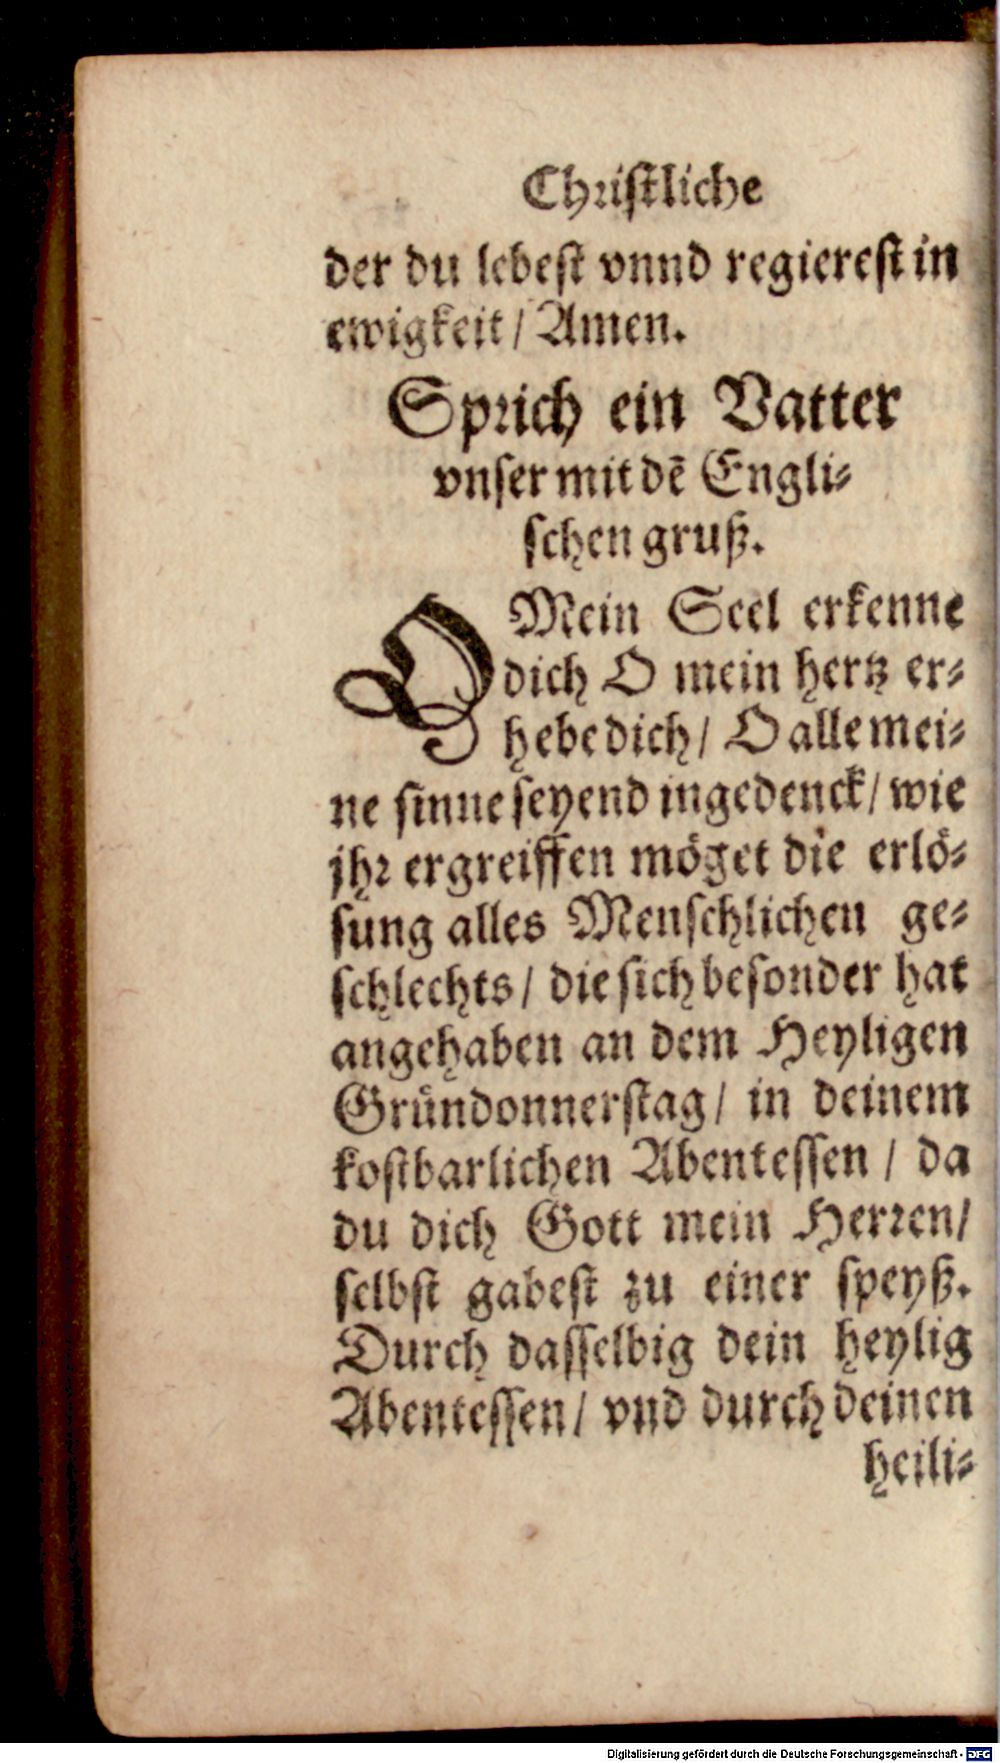 Christliche
der du lebest vnnd regierest in
ewigkeit / Amen.
Sprich ein Vatter
vnser mit dē Engli⸗
schen gruß.
O Mein Seel erkenne
dich O mein hertz er⸗
hebe dich / O alle mei⸗
ne sinne seyend ingedenck / wie
jhr ergreiffen möget die erlö⸗
sung alles Menschlichen ge⸗
schlechts / die sich besonder hat
angehaben an dem Heyligen
Gründonnerstag / in deinem
kostbarlichen Abentessen / da
du dich Gott mein Herren /
selbst gabest zu einer speyß.
Durch dasselbig dein heylig
Abentessen / vnd durch deinen
heili⸗
Digitalisierung gefördert durch die Deutsche Forschungsgemeinschaft - DFG